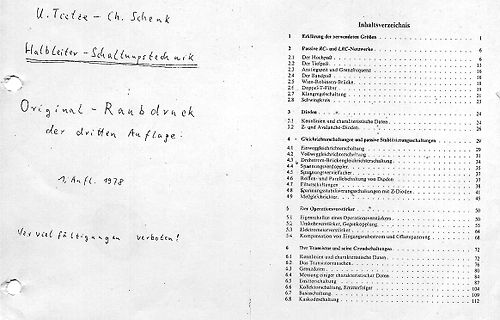 U. Tietze - Ch. Schenk
Halbleiter-Schaltungstechnik
Original - Raubdruck
der dritten Auflage.
1. Aufl. 1978
Vervielfältigungen verboten!
Inhaltsverzeichnis
1 Erklärung der verwendeten Größen 1
2 Passive RC- und LRC-Netzwerke 6
2.1 Der Hochpaß 6
2.2 Der Tiefpaß
2.3 Anstiegszeit und Grenzfrequenz
2.4 Der Bandpaß
2.5 Wien-Robinson-Brücke
2.6 Doppel-T-Filter
2.7 Klangregelschaltung
2.8 Schwingkreis
3 Dioden 24
3.1 Kennlinien und charakteristische Daten 24
3.2 Z- und Avalanche-Dioden 26
4 Gleichrichterschaltungen und passive Stabilisierungsschaltungen 29
4.1 Einweggleichrichterschaltung
4.2 Vollweggleichrichterschaltung
4.3 Drehstrom-Brückengleichrichterschaltung
4.4 Spannungsverdoppler
4.5 Spannungsvervielfacher
4.6 Reihen- und Parallelschaltung von Dioden
4.7 Filterschaltungen
4.8 Spannungsstabilisierungsschaltungen mit Z-Dioden
4.9 Meßgleichrichter
5 Der Operationsverstärker
5.1 Eigenschaften eines Operationsverstärkers
5.2 Umkehrverstärker, Gegenkopplung
5.3 Elektrometerverstärker
5.4 Kompensation von Eingangsruhestrom und Offsetspannung 68
6 Der Transistor und seine Grundschaltungen 72
6.1 Kennlinien und charakteristische Daten 72
6.2 Das Transistorrauschen 76
6.3 Grenzdaten 80
6.4 Messung einiger charakteristischer Daten
6.5 Emitterschaltung
6.6 Kollektorschaltung, Emitterfolger 104
6.7 Basisschaltung 109
6.8 Kaskodeschaltung 112